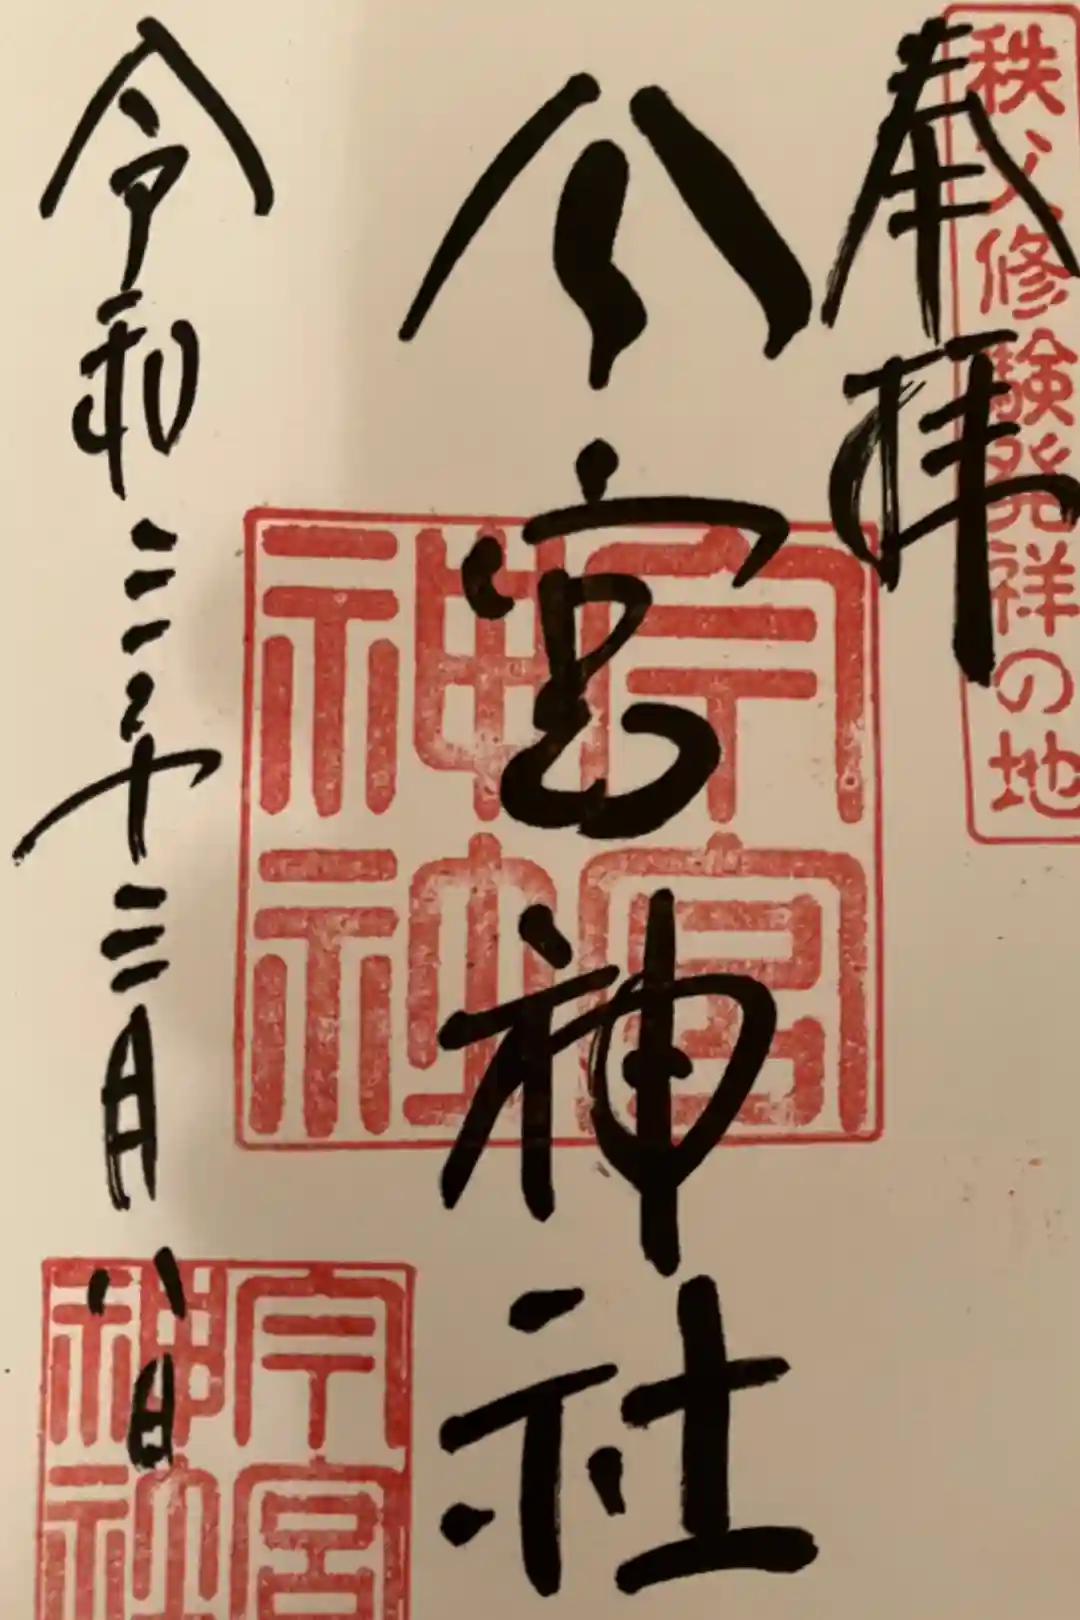 秩父修験発祥の地
奉拝
今宮神社
今宮神社
令和三年三月八日
今宮神社